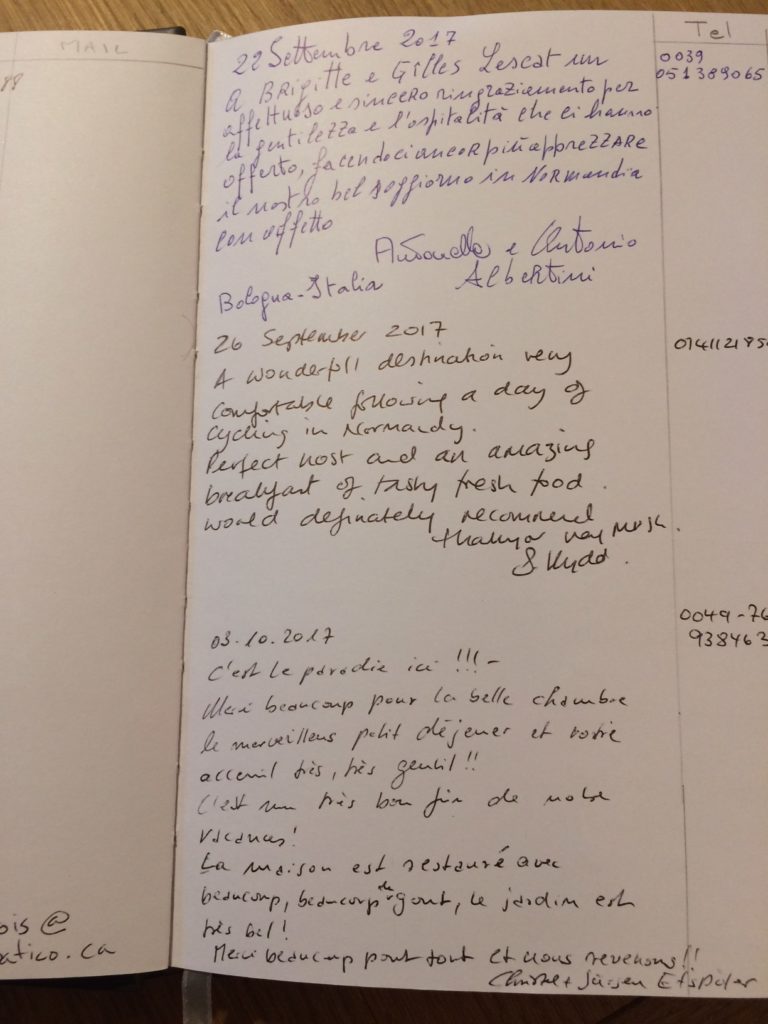 MAIL
Tel
22 Settembre 2017
A BRigitte e Gilles Lescat un
affettuoso e sincero ringraziamento per
la gentilezza e l'ospitalità che ci hanno
offerto, facendoci ancor più apprezzare
il nostro bel soggiorno in Normandia
con affetto
Antonella e Antonio
Albertini
Bologna-Italia
0039
051389065
26 September 2017
A wonderfll destination very
comfortable following a day of
cycling in Normandy.
Perfect host and an amazing
breakfast of tasty fresh food.
would definately recommend
thankyou very much.
S Kydd.
03.10.2017
C'est le paradie ici !!! -
Merci beaucoup pour la belle chambre
le merveilleus petit déjener et votre
acceuil très, très gentil!!
C'est un très bon fin de notre
vacances!
La maison est restauré avec
beaucoup, beaucoup de gout, le jardin est
très bel!
Merci beaucoup pour tout et nous revenons!!
Christel + Jürgen
0049-76
938463
ois @
atico.ca